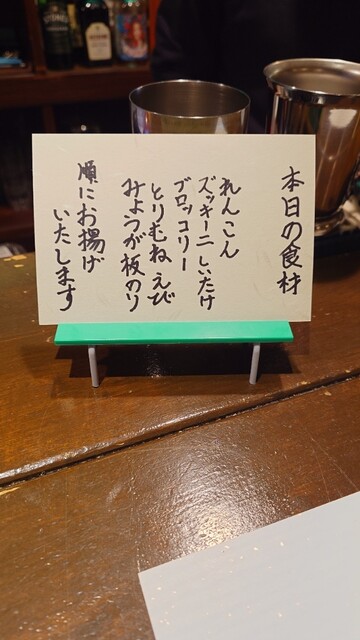 本日の食材
れんこん
ズッキーニ しいたけ
ブロッコリー
とりむね えび
みょうが 板のり
順にお揚げ
いたします